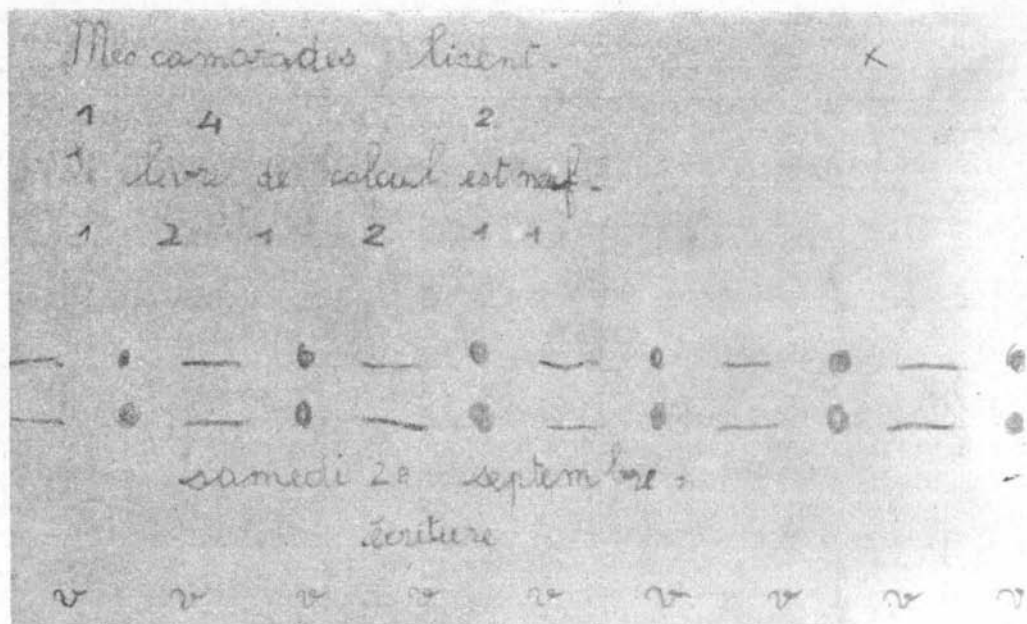 Mes camarades lisent.
1 4 2
le livre de calcul est neuf.
1 2 1 2 1 1
samedi 20 septembre.
écriture
v v v v v v v v v